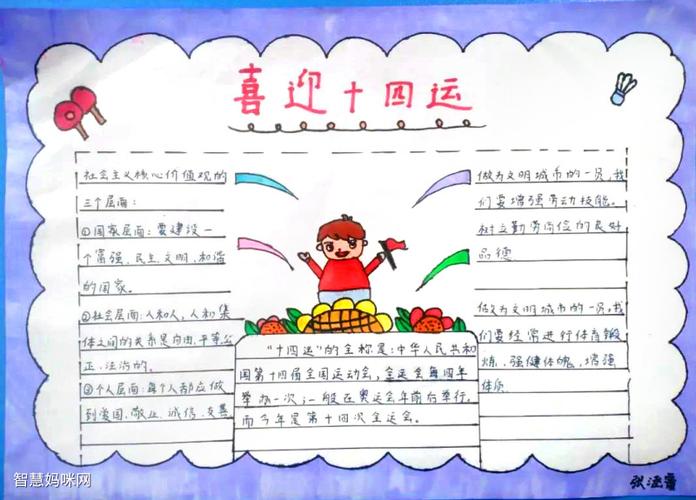 喜迎十四运
社会主义核心价值观的
三个层面:
①国家层面:要建设一
个富强、民主、文明、和谐
的国家。
②社会层面:人和人,人和集
体之间的关系是自由、平等、公
正、法治的。
③个人层面:每个人都应做
到爱国、敬业、诚信、友善
"十四运"的全称是:中华人民共和
国第十四届全国运动会,全运会每四年
举办一次,一般在奥运会年前后举行,
而今年是第十四次全运会。
做为文明城市的一员,我
们要增强劳动技能。
树立勤劳简俭的良好
品德
做为文明城市的一员,我
们要经常进行体育锻
炼,强健体魄,增强
体质
智慧妈咪网